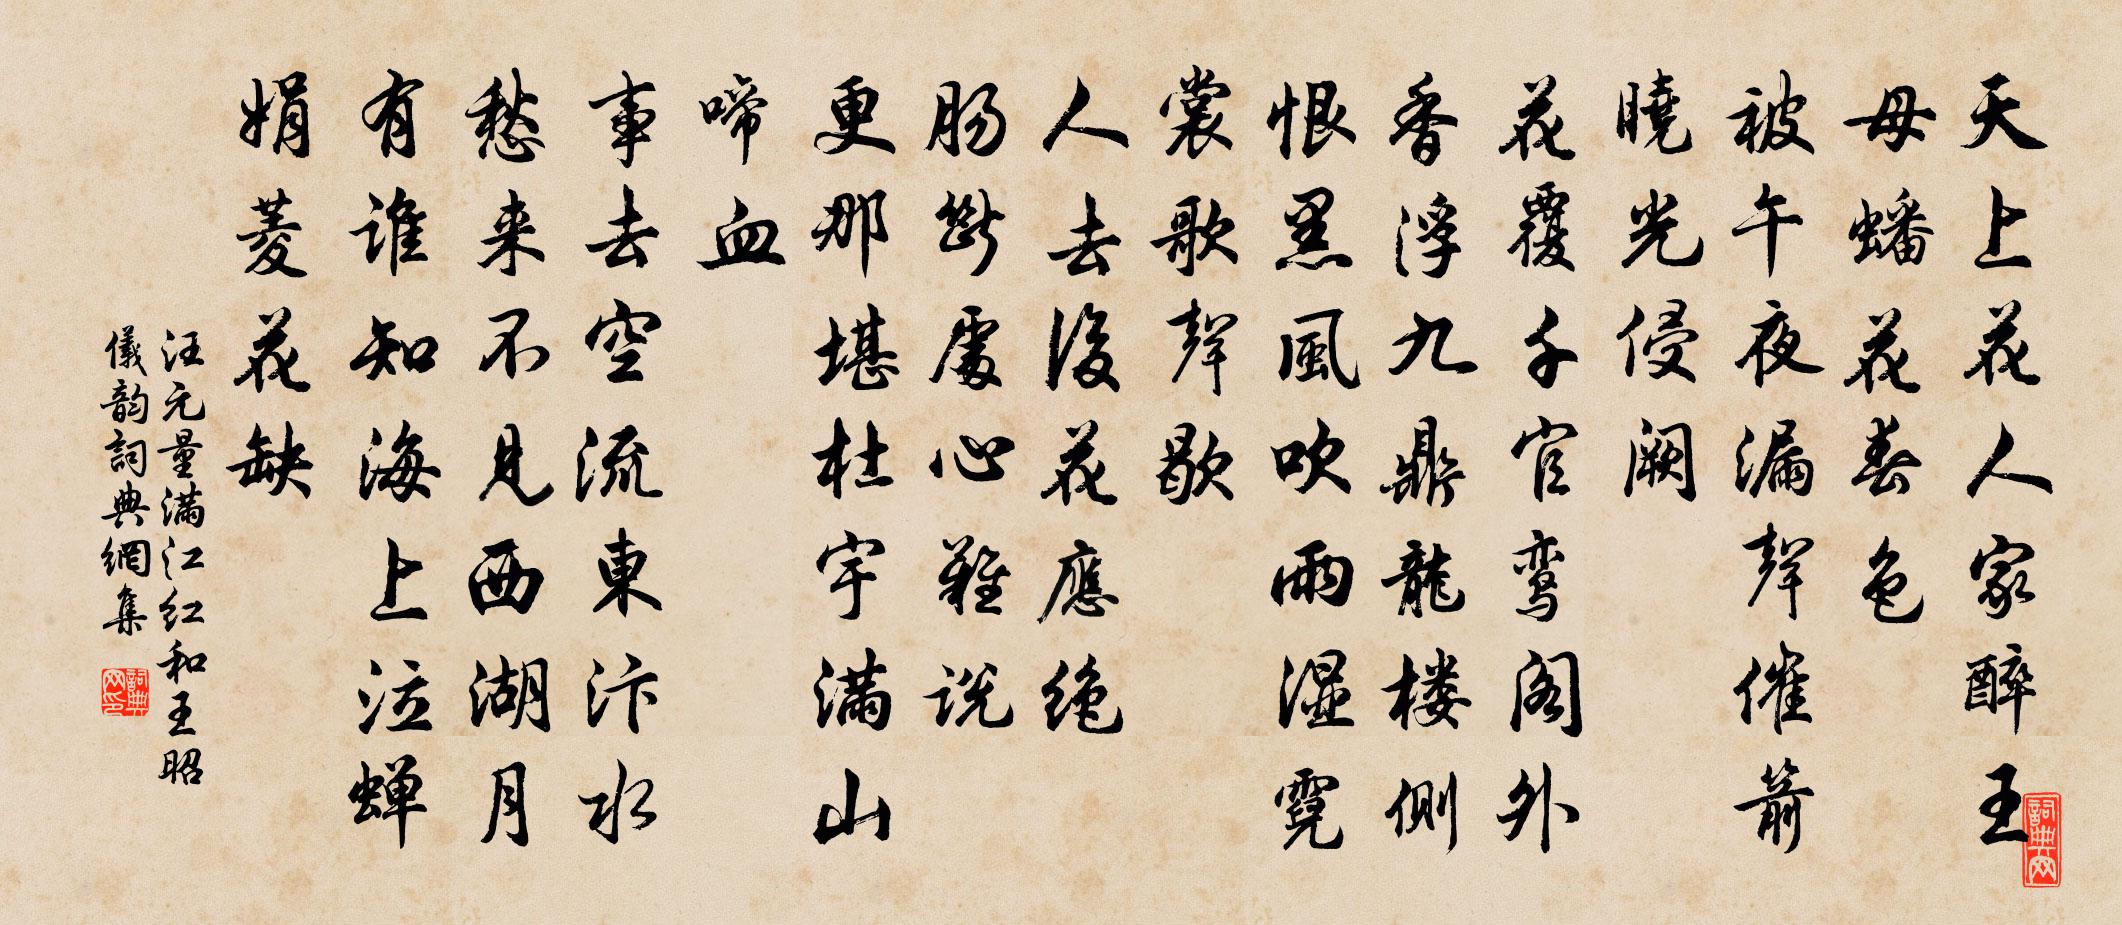 天上花人家醉王
母蟠花春色
被午夜漏聲催箭
曉光侵闕
花覆千官鸞阁外
香浮九鼎龍楼側
恨黑風吹雨湿霓
裳歌聲歇
人去後花應绝
肠斷處心難说
更那堪杜宇满山
啼血
事去空流東汴水
愁来不見西湖月
有谁知海上泣蝉
娟菱花缺
汪元量满江红和王昭
儀韵詞典網集
詞典网
詞典网印